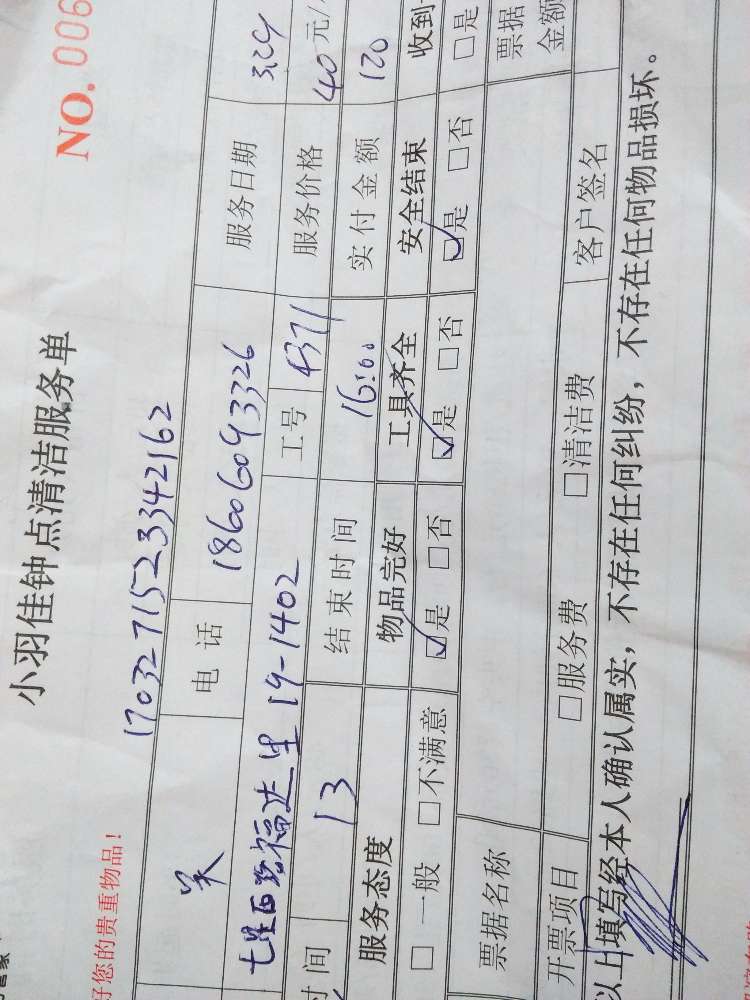 小羽佳钟点清洁服务单
NO. 006
好您的贵重物品！
17032715233342162
电话 18606093326 服务日期 3.29
七星西路福达里 19-1402 工号 4371 服务价格 40 元/
时间 13 结束时间 16:00 实付金额 120
服务态度 物品完好 工具齐全 安全结束 收到
□一般 □不满意 ☑是 □否 ☑是 □否 ☑是 □否 □是
票据名称 票据金额
开票项目 □服务费 □清洁费 客户签名
以上填写经本人确认属实，不存在任何纠纷，不存在任何物品损坏。